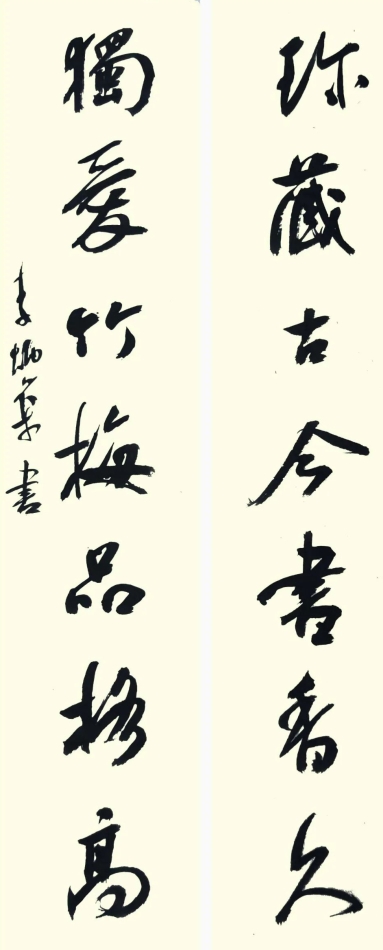 珎藏古今書香久
獨愛竹梅品格高
李炳
書